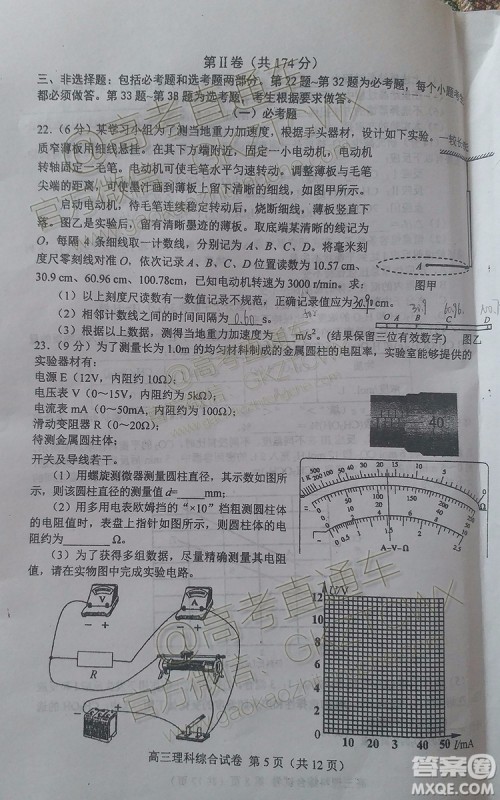 第Ⅱ卷（共 174 分）
三、非选择题：包括必考题和选考题两部分。第 22 题~第 32 题为必考题，每个小题考生
都必须做答。第 33 题~第 38 题为选考题，考生根据要求做答。
（一）必考题
22.（6 分）某学习小组为了测当地重力加速度，根据手头器材，设计如下实验。一较长轻
质窄薄板用细线悬挂。在其下方端附近，固定一小电动机，电动机
转轴固定一毛笔。电动机可使毛笔水平匀速转动。调整薄板与毛笔
尖端的距离，可使墨汁画到薄板上留下清晰的细线，如图甲所示。
启动电动机，待毛笔连续稳定转动后，烧断细线，薄板竖直下
落。图乙是实验后，留有清晰墨迹的薄板。取底端某清晰的线记为
O，每隔 4 条细线取一计数线，分别记为 A、B、C、D。将毫米刻
度尺零刻线对准 O，依次记录 A、B、C、D 位置读数为 10.57 cm、
30.9 cm、60.96 cm、100.78cm，已知电动机转速为 3000 r/min。求：
A
图甲
（1）以上刻度尺读数有一数值记录不规范，正确记录为30.9 cm
（2）相邻计数线之间的时间间隔为 s。
（3）根据以上数据，测得当地重力加速度为 m/s²。(结果保留三位有效数字)
30.9 60.96
O A B C D
图乙
23.（9 分）为了测量长为 1.0m 的均匀材料制成的金属圆柱的电阻率，实验室能够提供的
实验器材有：
电源 E（12V，内阻约 10Ω）；
电压表 V（0～15V，内阻约为 5kΩ）；
电流表 mA（0～50mA，内阻约为 100Ω）；
滑动变阻器 R（0～20Ω）；
待测金属圆柱体；
开关及导线若干。
40
（1）用螺旋测微器测量圆柱直径，其示数如图所
示，则该圆柱直径的测量值 d= mm；
（2）用多用电表欧姆挡的“×10”挡粗测圆柱体
的电阻值时，表盘上指针如图所示，则圆柱体的电
阻值约为 Ω。
（3）为了获得多组数据，尽量精确测量其电阻
值，请在实物图中完成实验电路。
A-V-Ω
V
A
R
U/V
12
10
8
6
4
2
0
10 20 30 40 50 I/mA
高三理科综合试卷 第 5 页（共 12 页）
@高考直通车
答案圈
MXQE.COM